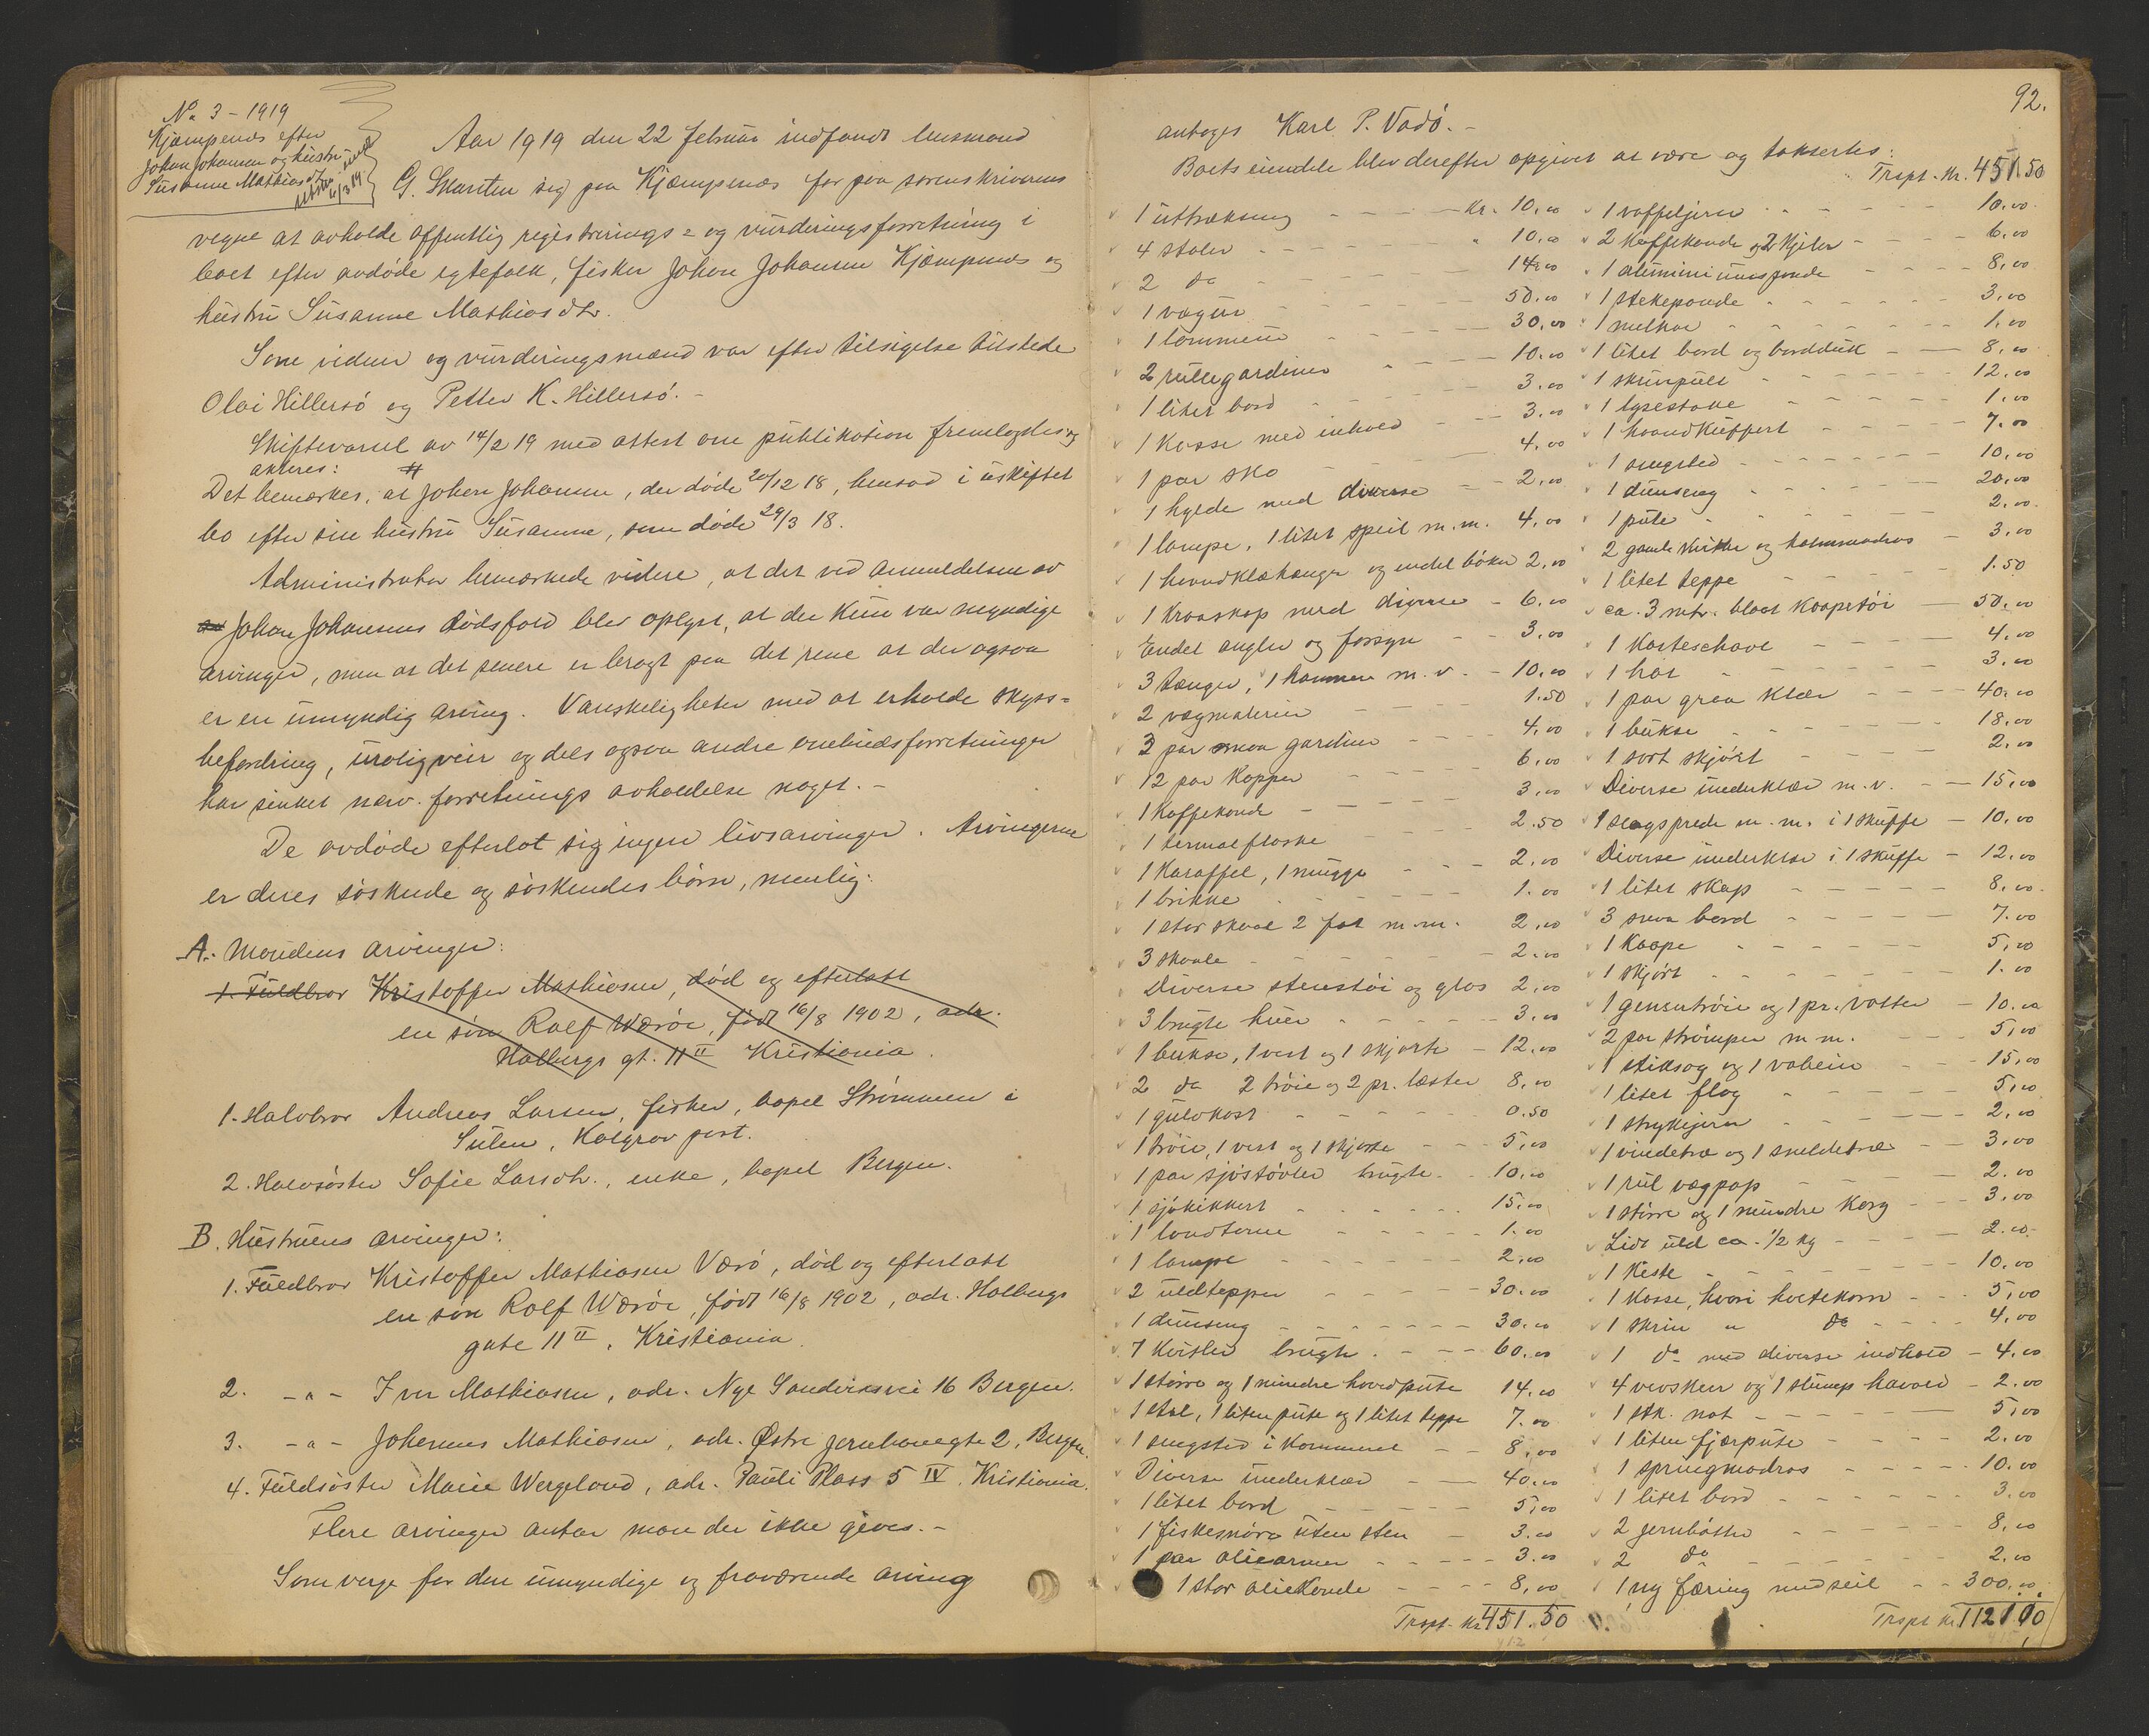 No 3 - 1919
Kjæmpenæs efter
Johan Johansen og hustru
Susanne Mathiasdtr
Aar 1919 den 22 februar indfandt lensmand
G. Skarsten sig paa Kjæmpenæs for paa sorenskriverens
vegne at avholde offentlig registrerings- og vurderingsforretning i
boet efter avdøde egtefolk, fisker Johan Johansen Kjæmpenæs og
hustru Susanne Mathiasdtr.
Som vidner og vurderingsmænd var efter tilsigelse tilstede
Olai Hillersø og Petter K. Hillersø. -
Skiftevarsel av 14/2 19 med attest om publikation fremlagdes og
akteres:
Det bemærkes, at Johan Johansen, der døde 20/12 18, hensad i uskiftet
bo efter sin hustru Susanne, som døde 29/3 18.
Administrator bemærkede videre, at det ved anmeldelsen av
Johan Johansens dødsfald blev oplyst, at der kun var myndige
arvinger, men at det senere er bragt paa det rene at der ogsaa
er en umyndig arving. Vanskeligheter med at erholde skyss-
befordring, urolig veir og dels ogsaa andre embedsforretninger
har sinket nærv. forretnings avholdelse noget. -
De avdøde efterlot sig ingen livsarvinger. Arvingerne
er deres søskende og søskendes børn, nemlig:
A. Mandens arvinger:
1. Fuldbror Kristoffer Mathiasen, død og efterlatt
en søn Rolf Værøe, født 16/8 1902, adr.
Holbergs gt. 11 II Kristiania.
1. Halvbror Andreas Larsen, fisker, bopel Strømmen i
Sulen, Kolgrov post.
2. Halvsøster Sofie Larsdtr., enke, bopel Bergen.
B. Hustruens arvinger:
1. Fuldbror Kristoffer Mathiasen Værø, død og efterlatt
en søn Rolf Værøe, født 16/8 1902, adr. Holbergs
gate 11 II, Kristiania.
2. - " - Iver Mathiasen, adr. Nye Sandviksvei 16 Bergen.
3. - " - Johannes Mathiasen, adr. Østre Jernbanegte 2, Bergen.
4. Fuldsøster Marie Wergeland, adr. Pauli Plass 5 IV. Kristiania.
Flere arvinger antar man der ikke gives. -
Som verge for den umyndige og fraværende arving
92.
antages Karl P. Vadø. -
Boets eiendele blev derefter opgivet at være og taksertes:
1 uttræksseng - - - Kr. 10,00
4 stoler - - - " 10,00
2 do - - - 14,00
1 vægur - - - 50,00
1 lommeur - - - 30,00
2 rullegardiner - - - 10,00
1 litet bord - - - 3,00
1 kasse med inhold - - 3,00
1 par sko - - - 4,00
1 hylde med diverse - - 2,00
1 lampe, 1 litet speil m.m. 4,00
1 haandklæhænger og endel bøker 2,00
1 kroaskap med diverse - 6,00
Endel angler og forsyn - - 3,00
3 tænger, 1 hammer m.v. - 10,00
2 vægmalerier - - - 1.50
3 par smaa gardiner - - - 4,00
12 par kopper - - - 6,00
1 kaffekande - - - 3,00
1 termosflaske - - - 2.50
1 karaffel, 1 mugge - - - 2,00
1 brikke - - - 1,00
1 stor skaal 2 fat m.m. 2,00
3 skaale - - - 2,00
Diverse stenstøi og glas 2,00
3 brugte huer - - - 3,00
1 bukse, 1 vest og 1 skjorte - 12,00
2 do 2 trøie og 2 pr. læster 8,00
1 gulvkost - - - 0.50
1 trøie, 1 vest og 1 skjorte - - 5,00
1 par sjøstøvler brugte - 10,00
1 sjøkikkert - - - 15,00
1 landterne - - - 1,00
1 lampe - - - 2,00
2 uldtepper - - - 30,00
1 dunseng - - - 30,00
7 kvitler brugte - - - 60,00
1 større og 1 mindre hovedpute 14,00
1 stol, 1 liten pute og 1 litet teppe 7,00
1 sengsted i kammeret - - 8,00
Diverse underklær - - 40,00
1 litet bord - - - 5,00
1 fiskesnøre uten sten - 3,00
1 par oliearmer - - - 3,00
1 stor oliekande - - - 8,00
Trspt. Kr. 451.50
Trspt. Kr. 451.50
1 vaffeljern - - - 10,00
2 kaffekande og 2 kjeler - - - 6,00
1 aluminiumspande - - - 8,00
1 stekepande - - - 3,00
1 melkar - - - 1,00
1 litet bord og bordduk - - 8,00
1 skrivpult - - - 12,00
1 lysestake - - - 1,00
1 haandkuffert - - - 7,00
1 sengsted - - - 10,00
1 dunseng - - - 20,00
1 pute - - - 2,00
2 gamle kvitler og halmmadras - 3,00
1 litet teppe - - - 1.50
ca. 3 mtr. blaat kaapetøi - 50,00
1 karteschavl - - - 4,00
1 hat - - - 3,00
1 par graa klær - - - 40,00
1 bukse - - - 18,00
1 sort skjørt - - - 2,00
Diverse underklær m.v. - - 15,00
1 slagsprede m.m. i 1 skuffe - 10,00
Diverse underklær i 1 skuffe - 12,00
1 litet skap - - - 8,00
3 smaa bord - - - 7,00
1 kaape - - - 5,00
1 skjørt - - - 1,00
1 gensertrøie og 1 pr. votter - 10,00
2 par strømper m.m. - - 5,00
1 stiksag og 1 vabein - - 15,00
1 litet flag - - - 5,00
1 strykejern - - - 2,00
1 vindetræ og 1 sneldetræ - - 3,00
1 rul vægpap - - - 2,00
1 større og 1 mindre korg - - 3,00
Lidt uld ca. 1/2 kg - - - 2,00
1 kiste - - - 10,00
1 kasse, hvori hvetekorn - - - 5,00
1 skrin " do - - - 4,00
1 do med diverse indhold - 4,00
4 vevskeer og 1 stump havald - 2,00
1 stk. not - - - 5,00
1 liten fjærpute - - - 2,00
1 springmadras - - - 10,00
1 litet bord - - - 3,00
2 jernbøtter - - - 8,00
2 do - - - 2,00
1 ny færing med seil - - 300,00
Trspt Kr. 1121.00